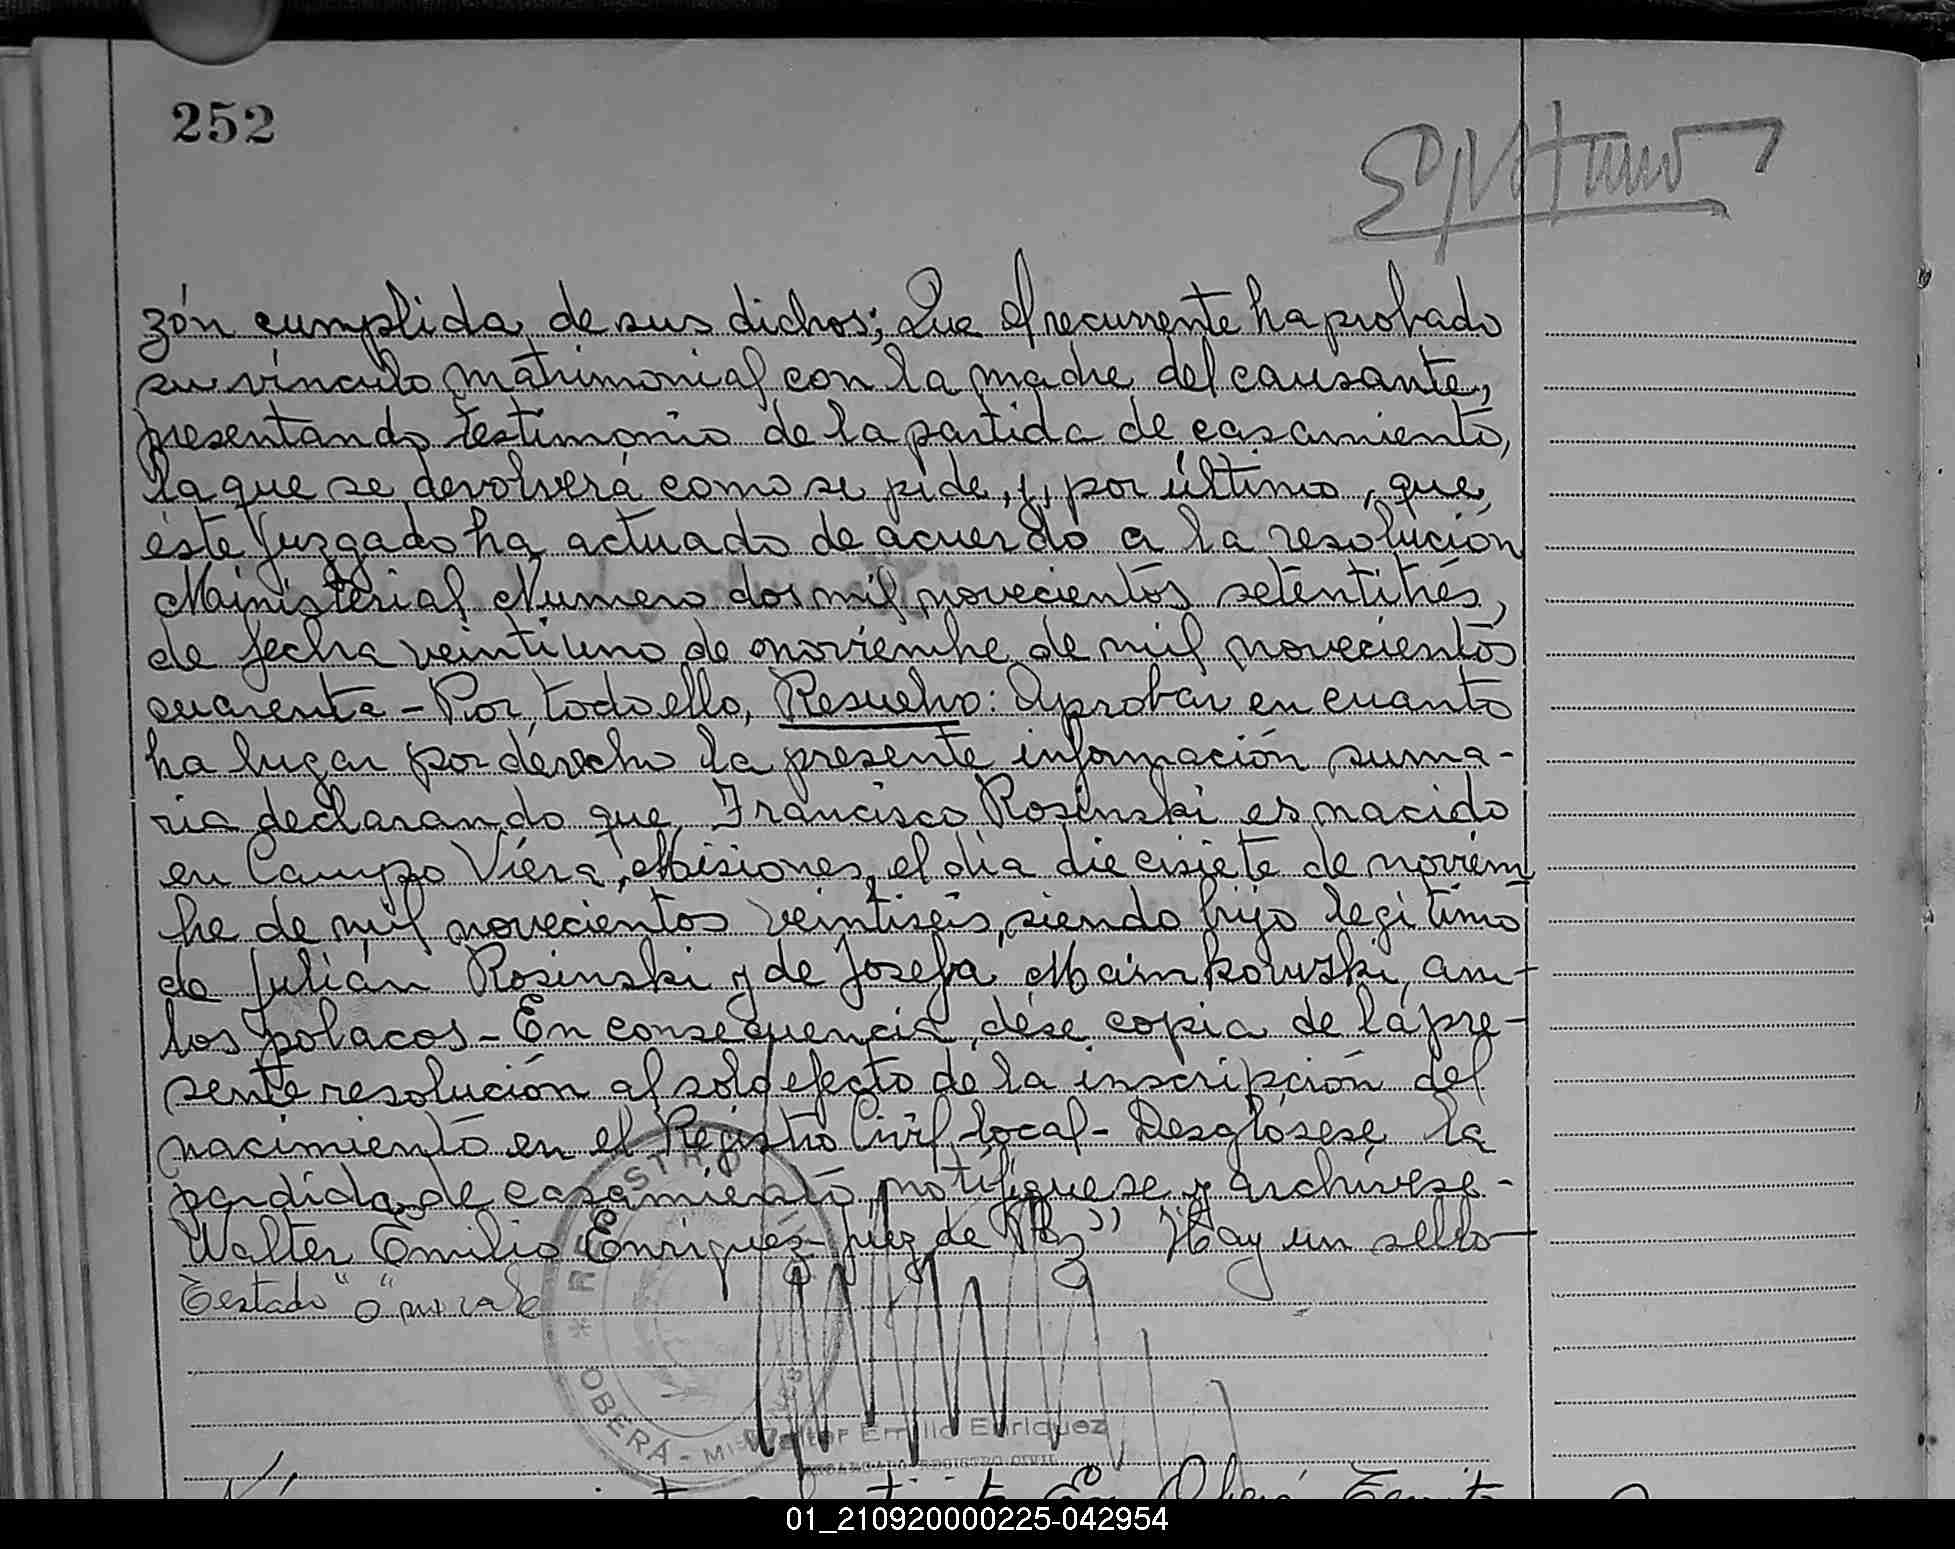 252
zón cumplida de sus dichos; Que el recurrente ha probado
su vínculo matrimonial con la madre del causante,
presentando testimonio de la partida de casamiento,
la que se devolverá como se pide, y, por último, que,
éste Juzgado ha actuado de acuerdo a la resolución
Ministerial Numero dos mil novecientos setentitrés,
de fecha veintiuno de noviembre de mil novecientos
cuarenta - Por todo ello, Resuelvo: Aprobar en cuanto
ha lugar por derecho la presente información suma-
ria declarando que Francisco Rosinski es nacido
en Campo Viera, Misiones, el día diecisiete de noviem
bre de mil novecientos veintiseis, siendo hijo legítimo
de Julián Rosinski y de Josefa Mainkowski, am-
bos polacos - En consecuencia, dése copia de la pre-
sente resolución al sólo efecto de la inscripción del
nacimiento en el Registro Civil local - Desglósese la
partida de casamiento, notifíquese y archívese -
Walter Emilio Enriquez - Juez de Paz" Hay un sello -
Testado "o" no vale
OBERÁ - MISIONES
Walter Emilio Enriquez
ENCARGADO REGISTRO CIVIL
01_210920000225-042954